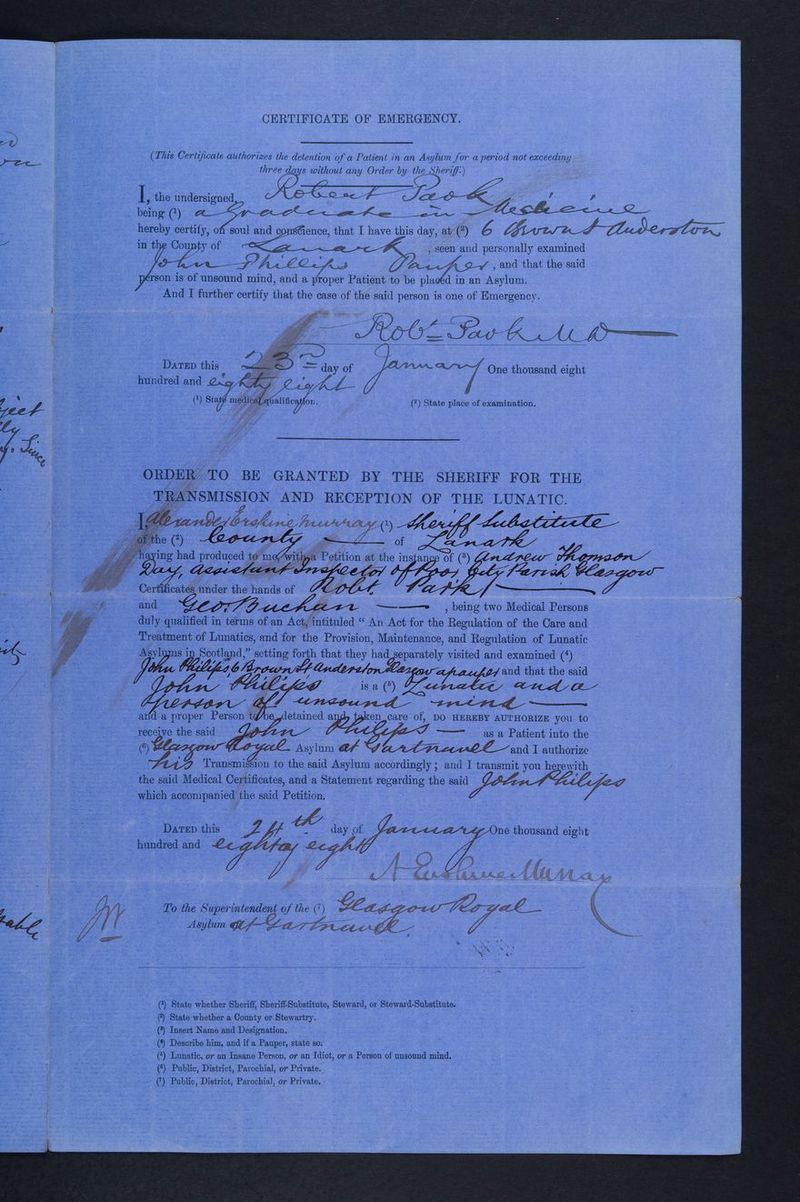 CERTIFICATE OF EMERGENCY.
(This Certificate authorizes the detention of a Patient in an Asylum for a period not exceeding
three days without any Order by the Sheriff.)
I, the undersigned, Robert Park
being (1) a Graduate in Medicine
hereby certify, on soul and conscience, that I have this day, at (2) 6 Brown St Anderston
in the County of Lanark, seen and personally examined
John Phillips Pauper, and that the said
person is of unsound mind, and a proper Patient to be placed in an Asylum.
And I further certify that the case of the said person is one of Emergency.
Robt Park MD
DATED this 23rd day of January One thousand eight
hundred and eighty eight
(1) State medical qualification. (2) State place of examination.
ORDER TO BE GRANTED BY THE SHERIFF FOR THE
TRANSMISSION AND RECEPTION OF THE LUNATIC.
I, Alexander Erskine Murray (1) Sheriff Substitute
of the (2) County of Lanark
having had produced to me, with a Petition at the instance of (3) Andrew Thomson
Day, assistant Inspector of Poor City Parish Glasgow
Certificates under the hands of Robt. Park
and Geo. Buchan, being two Medical Persons
duly qualified in terms of an Act, intituled " An Act for the Regulation of the Care and
Treatment of Lunatics, and for the Provision, Maintenance, and Regulation of Lunatic
Asylums in Scotland," setting forth that they had separately visited and examined (4)
John Philips 6 Brown St Anderston Glasgow a pauper and that the said
John Philips is a (5) Lunatic and a
person of unsound mind
and a proper Person to be detained and taken care of, DO HEREBY AUTHORIZE you to
receive the said John Philips as a Patient into the
(6) Glasgow Royal Asylum at Gartnavel and I authorize
his Transmission to the said Asylum accordingly; and I transmit you herewith
the said Medical Certificates, and a Statement regarding the said John Philips
which accompanied the said Petition.
DATED this 24th day of January One thousand eight
hundred and eighty eight
A Erskine Murray
To the Superintendent of the (7) Glasgow Royal
Asylum at Gartnavel
(1) State whether Sheriff, Sheriff-Substitute, Steward, or Steward-Substitute.
(2) State whether a County or Stewartry.
(3) Insert Name and Designation.
(4) Describe him, and if a Pauper, state so.
(5) Lunatic, or an Insane Person, or an Idiot, or a Person of unsound mind.
(6) Public, District, Parochial, or Private.
(7) Public, District, Parochial, or Private.